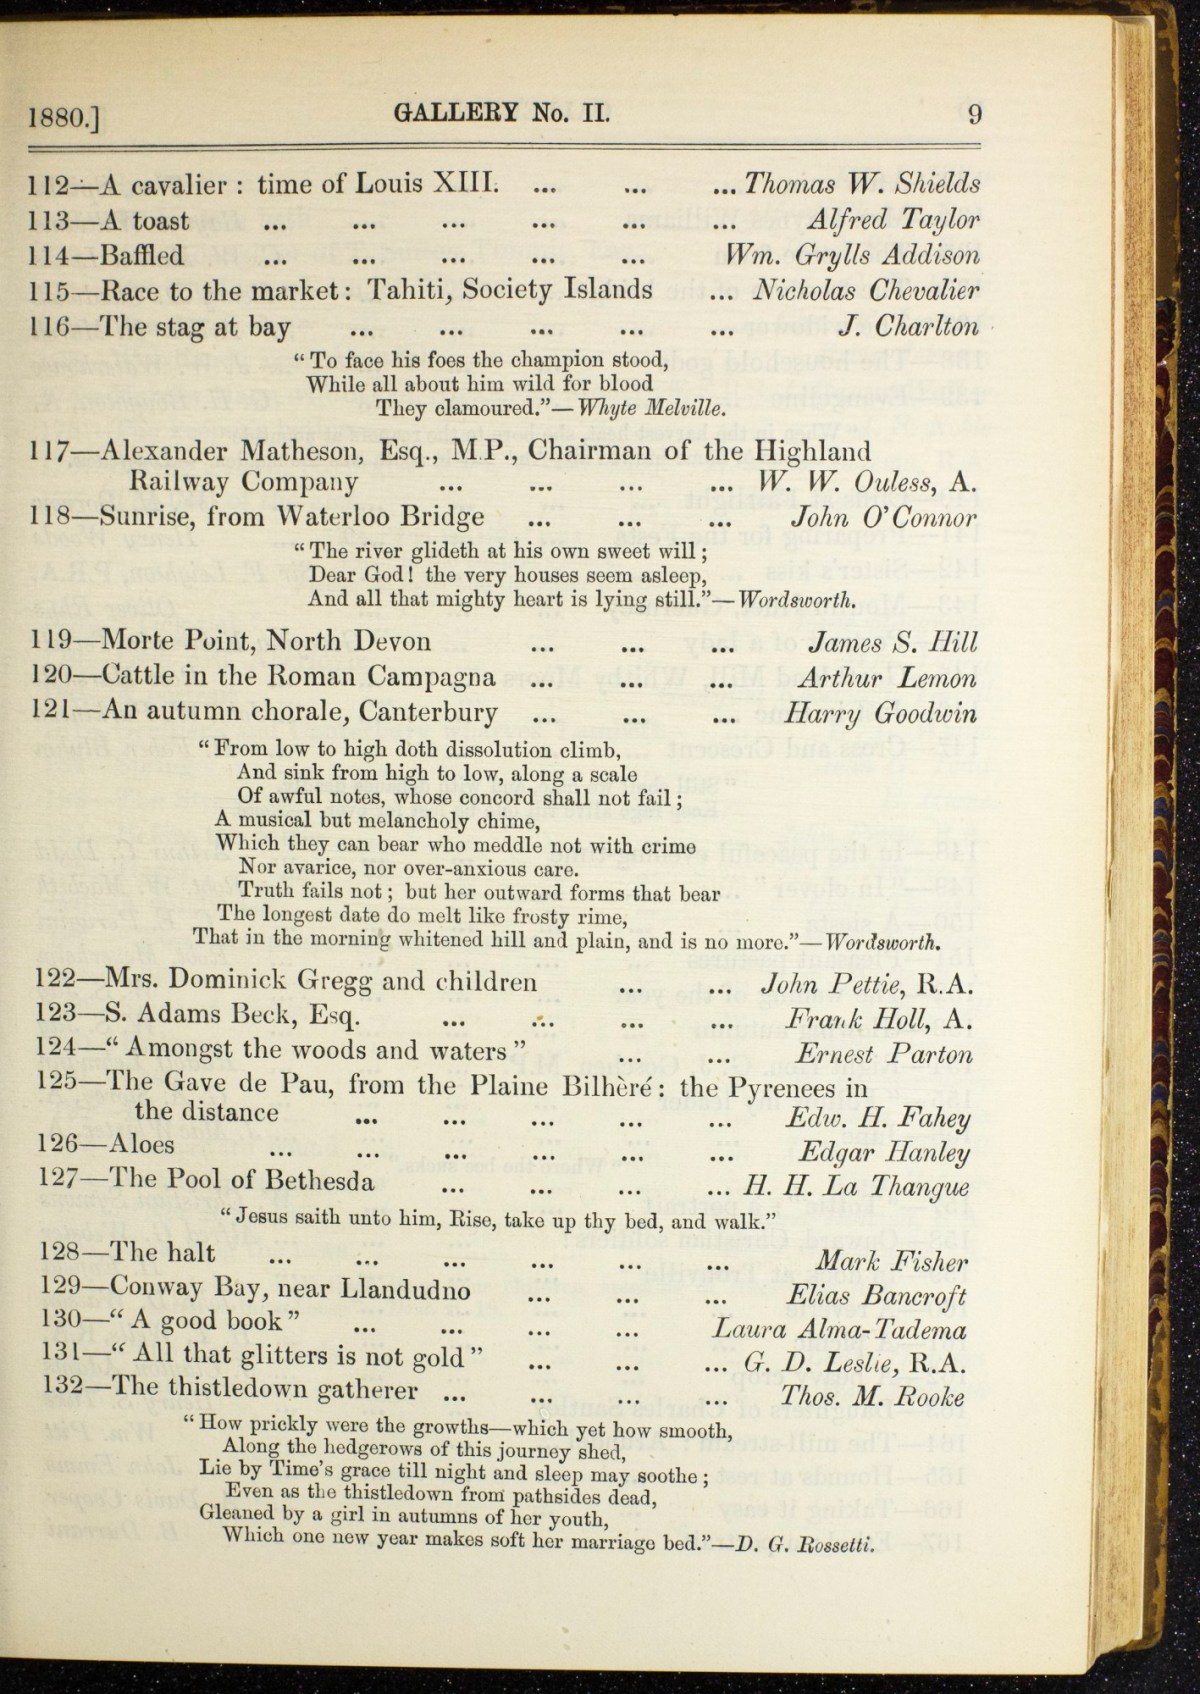 1880.] GALLERY No. II. 9
112—A cavalier : time of Louis XIII. ... ... ... Thomas W. Shields
113—A toast ... ... ... ... ... ... Alfred Taylor
114—Baffled ... ... ... ... ... Wm. Grylls Addison
115—Race to the market: Tahiti, Society Islands ... Nicholas Chevalier
116—The stag at bay ... ... ... ... ... J. Charlton
“To face his foes the champion stood,
While all about him wild for blood
They clamoured.”—Whyte Melville.
117—Alexander Matheson, Esq., M.P., Chairman of the Highland
Railway Company ... ... ... ... W. W. Ouless, A.
118—Sunrise, from Waterloo Bridge ... ... ... John O'Connor
“The river glideth at his own sweet will;
Dear God! the very houses seem asleep,
And all that mighty heart is lying still.”—Wordsworth.
119—Morte Point, North Devon ... ... ... James S. Hill
120—Cattle in the Roman Campagna ... ... ... Arthur Lemon
121—An autumn chorale, Canterbury ... ... ... Harry Goodwin
“From low to high doth dissolution climb,
And sink from high to low, along a scale
Of awful notes, whose concord shall not fail;
A musical but melancholy chime,
Which they can bear who meddle not with crime
Nor avarice, nor over-anxious care.
Truth fails not; but her outward forms that bear
The longest date do melt like frosty rime,
That in the morning whitened hill and plain, and is no more.”—Wordsworth.
122—Mrs. Dominick Gregg and children ... ... John Pettie, R.A.
123—S. Adams Beck, Esq. ... ... ... ... Frank Holl, A.
124—“Amongst the woods and waters” ... ... Ernest Parton
125—The Gave de Pau, from the Plaine Bilhèré: the Pyrenees in
the distance ... ... ... ... ... Edw. H. Fahey
126—Aloes ... ... ... ... ... ... Edgar Hanley
127—The Pool of Bethesda ... ... ... ... H. H. La Thangue
“Jesus saith unto him, Rise, take up thy bed, and walk.”
128—The halt ... ... ... ... ... ... Mark Fisher
129—Conway Bay, near Llandudno ... ... ... Elias Bancroft
130—“A good book” ... ... ... ... Laura Alma-Tadema
131—“All that glitters is not gold” ... ... ... G. D. Leslie, R.A.
132—The thistledown gatherer ... ... ... ... Thos. M. Rooke
“How prickly were the growths—which yet how smooth,
Along the hedgerows of this journey shed,
Lie by Time's grace till night and sleep may soothe;
Even as the thistledown from pathsides dead,
Gleaned by a girl in autumns of her youth,
Which one new year makes soft her marriage bed.”—D. G. Rossetti.